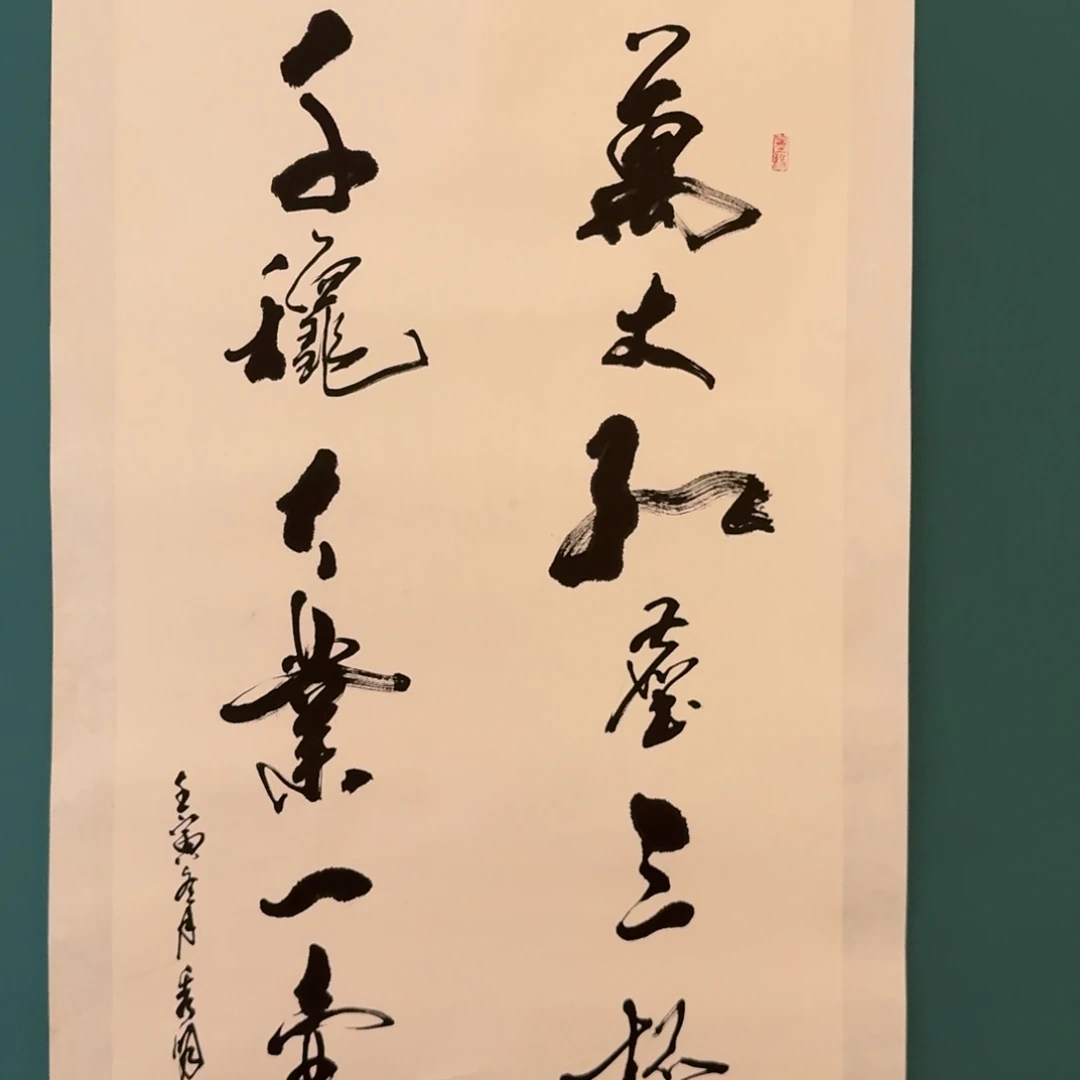 萬丈紅塵三杯
千龝大業一壺
壬寅冬月